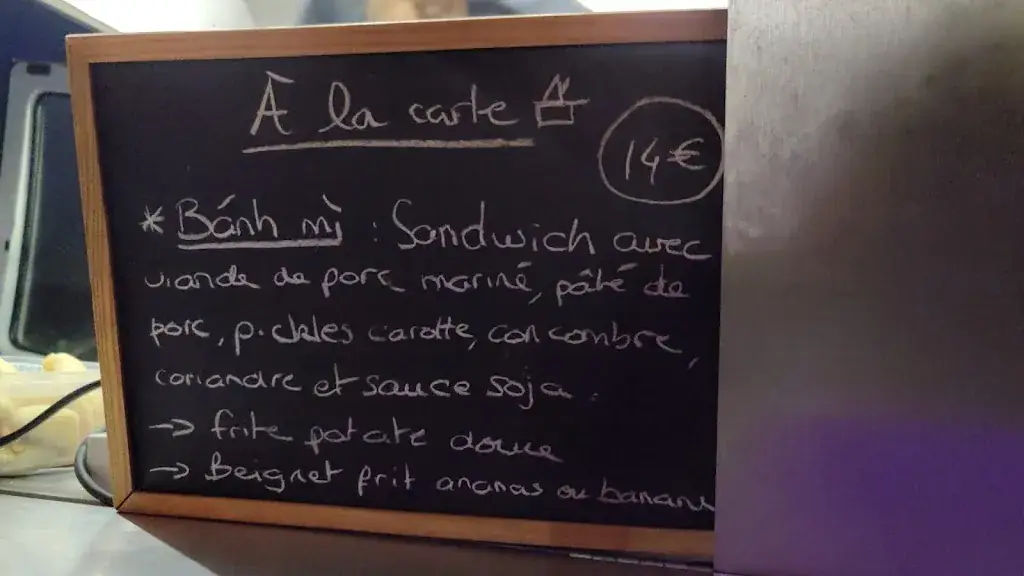 À la carte
14€
* Bánh mì : Sandwich avec
viande de porc mariné, pâté de
porc, pickles carotte, concombre,
coriandre et sauce soja.
→ frite patate douce
→ Beignet frit ananas ou banane